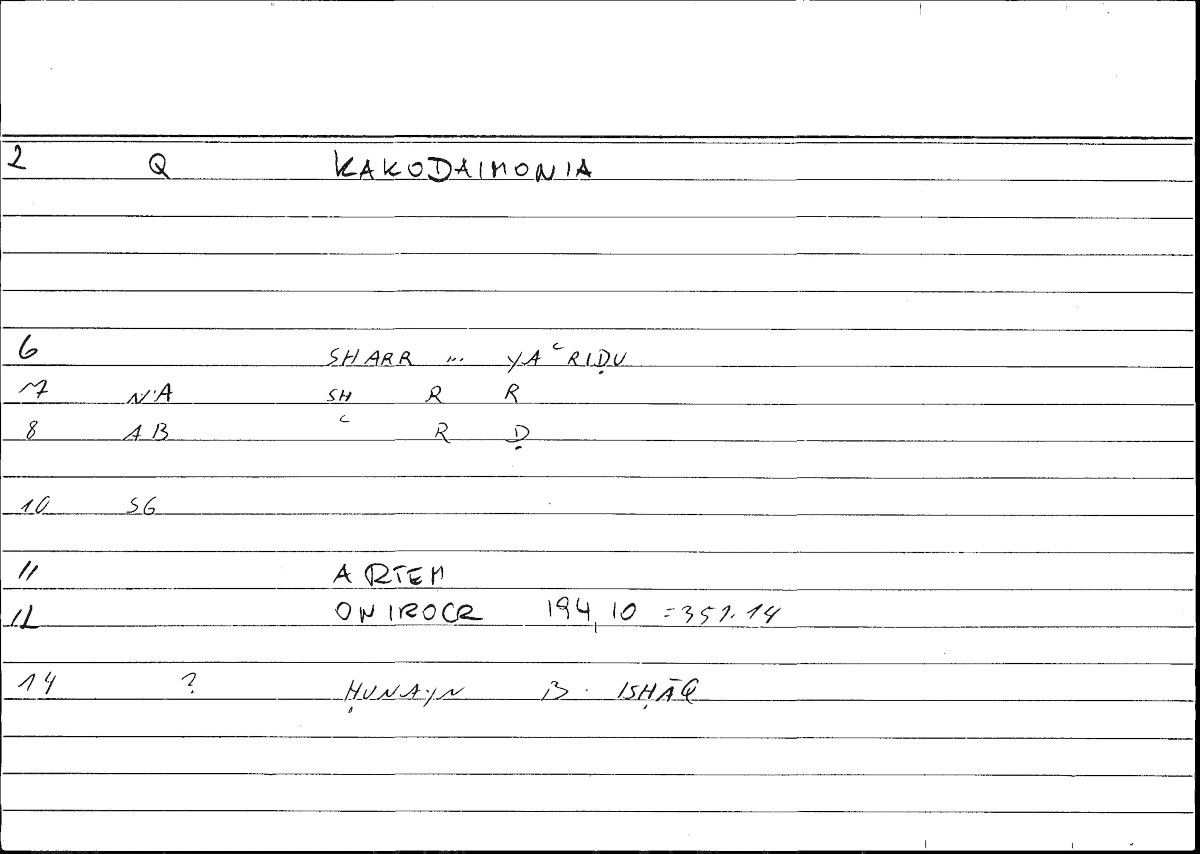 2 Q KAKODAIMONIA
6 SHARR ... YAʿRIḌU
7 N'A SH R R
8 AB ʿ R Ḍ
10 SG
11 ARTEM
12 ONIROCR 194,10 = 351.14
14 ? ḤUNAYN B. ISḤĀQ